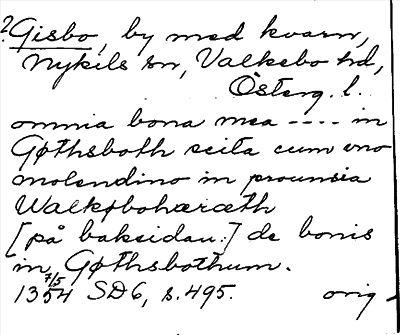 ? Gisbo, by med kvarn,
Nykils sn, Valkebo hd,
Österg. l.
omnia bona mea ---- in
Gøthsboth scita cum vno
molendino in prouinsia
Walkøbohæræth
[på baksidan:] de bonis
in Gøthsbothum.
1354 7/5 SD6, s. 495. orig